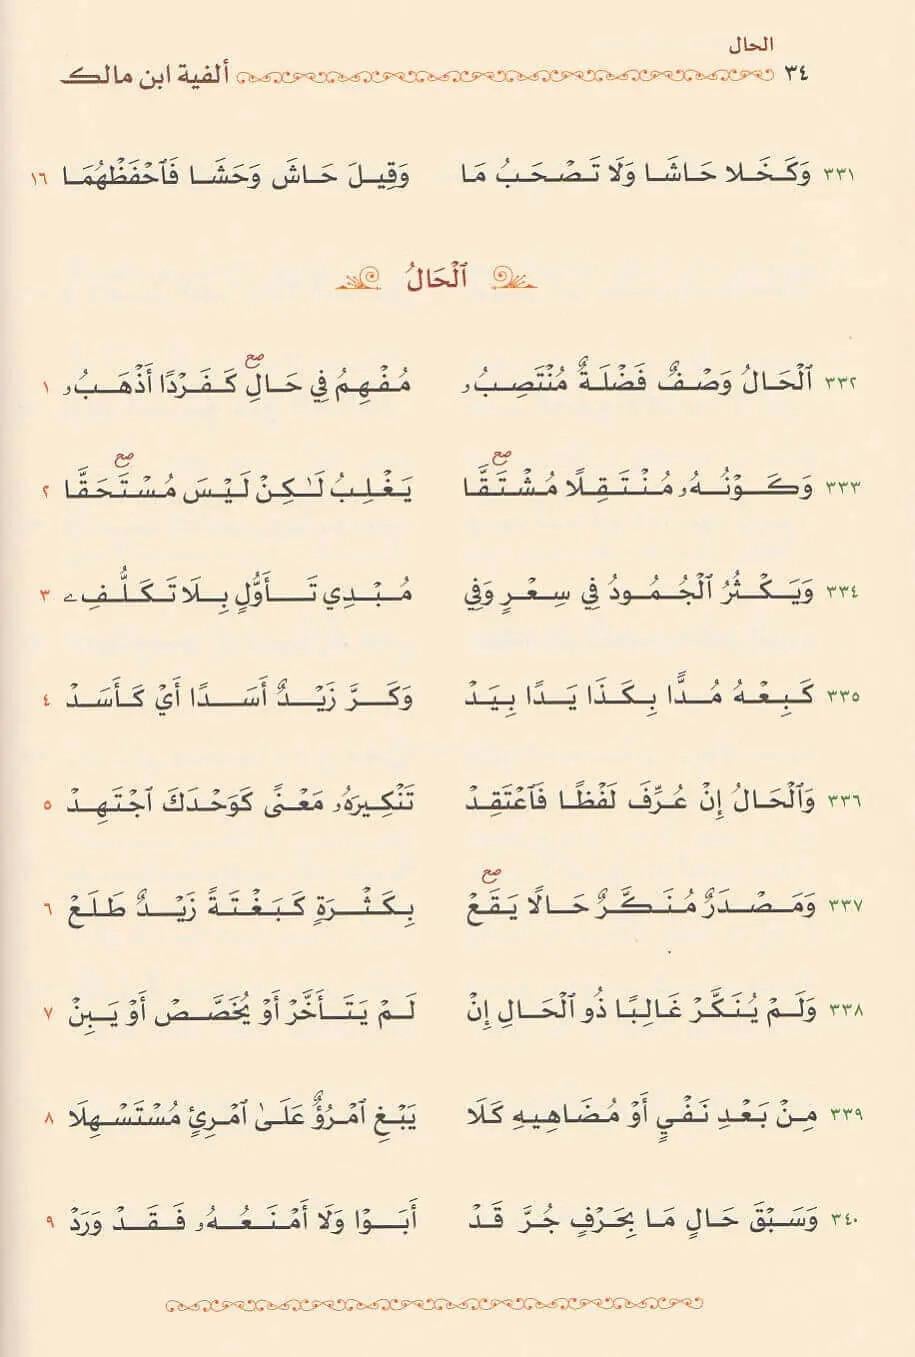 الحال
٣٤ ألفية ابن مالك
٣٣١ وَكَخَلَا حَاشَا وَلَا تَصْحَبُ مَا وَقِيلَ حَاشَ وَحَشَا فَٱحْفَظْهُمَا ١٦
ٱلْحَالُ
صح
٣٣٢ ٱلْحَالُ وَصْفٌ فَضْلَةٌ مُنْتَصِبُۥ مُفْهِمُ فِي حَالِ كَفَرْدًا أَذْهَبُۥ ١
صح صح
٣٣٣ وَكَوْنُهُۥ مُنْتَقِلًا مُشْتَقَّا يَغْلِبُ لَٰكِنْ لَيْسَ مُسْتَحَقَّا ٢
٣٣٤ وَيَكْثُرُ ٱلْجُمُودُ فِي سِعْرٍ وَفِي مُبْدِي تَأَوُّلٍ بِلَا تَكَلُّفِے ٣
٣٣٥ كَبِعْهُ مُدًّا بِكَذَا يَدًا بِيَدْ وَكَرَّ زَيْدٌ أَسَدًا أَيْ كَأَسَدْ ٤
٣٣٦ وَٱلْحَالُ إِنْ عُرِّفَ لَفْظًا فَٱعْتَقِدْ تَنْكِيرَهُۥ مَعْنًى كَوَحْدَكَ ٱجْتَهِدْ ٥
صح
٣٣٧ وَمَصْدَرٌ مُنَكَّرٌ حَالًا يَقَعْ بِكَثْرَةٍ كَبَغْتَةً زَيْدٌ طَلَعْ ٦
٣٣٨ وَلَمْ يُنَكَّرْ غَالِبًا ذُو ٱلْحَالِ إِنْ لَمْ يَتَأَخَّرْ أَوْ يُخَصَّصْ أَوْ يَبِنْ ٧
٣٣٩ مِنْ بَعْدِ نَفْيٍ أَوْ مُضَاهِيهِ كَلَا يَبْغِ ٱمْرُؤٌ عَلَىٰ ٱمْرِئٍ مُسْتَسْهِلَا ٨
٣٤٠ وَسَبْقَ حَالٍ مَا بِحَرْفٍ جُرَّ قَدْ أَبَوْا وَلَا أَمْنَعُهُۥ فَقَدْ وَرَدْ ٩